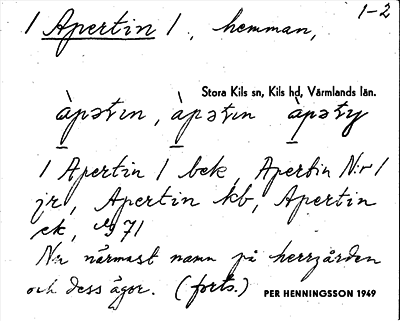 1-2
/ Apertin /, hemman,
Stora Kils sn, Kils hd, Värmlands län.
àpətın, àpətın àpəty
/ Apertin / bek, Apertin N:r 1
jr, Apertin kb, Apertin
ek, 71
Nu närmast namn på herrgården
och dess ägor. (forts.)
PER HENNINGSSON 1949